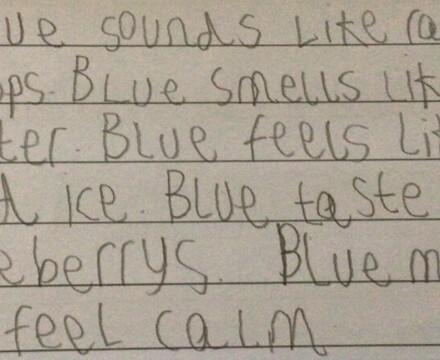 ue sounds like
ops. Blue smells
ter. Blue feels
ice. Blue taste
eberrys. Blue m
feel calm